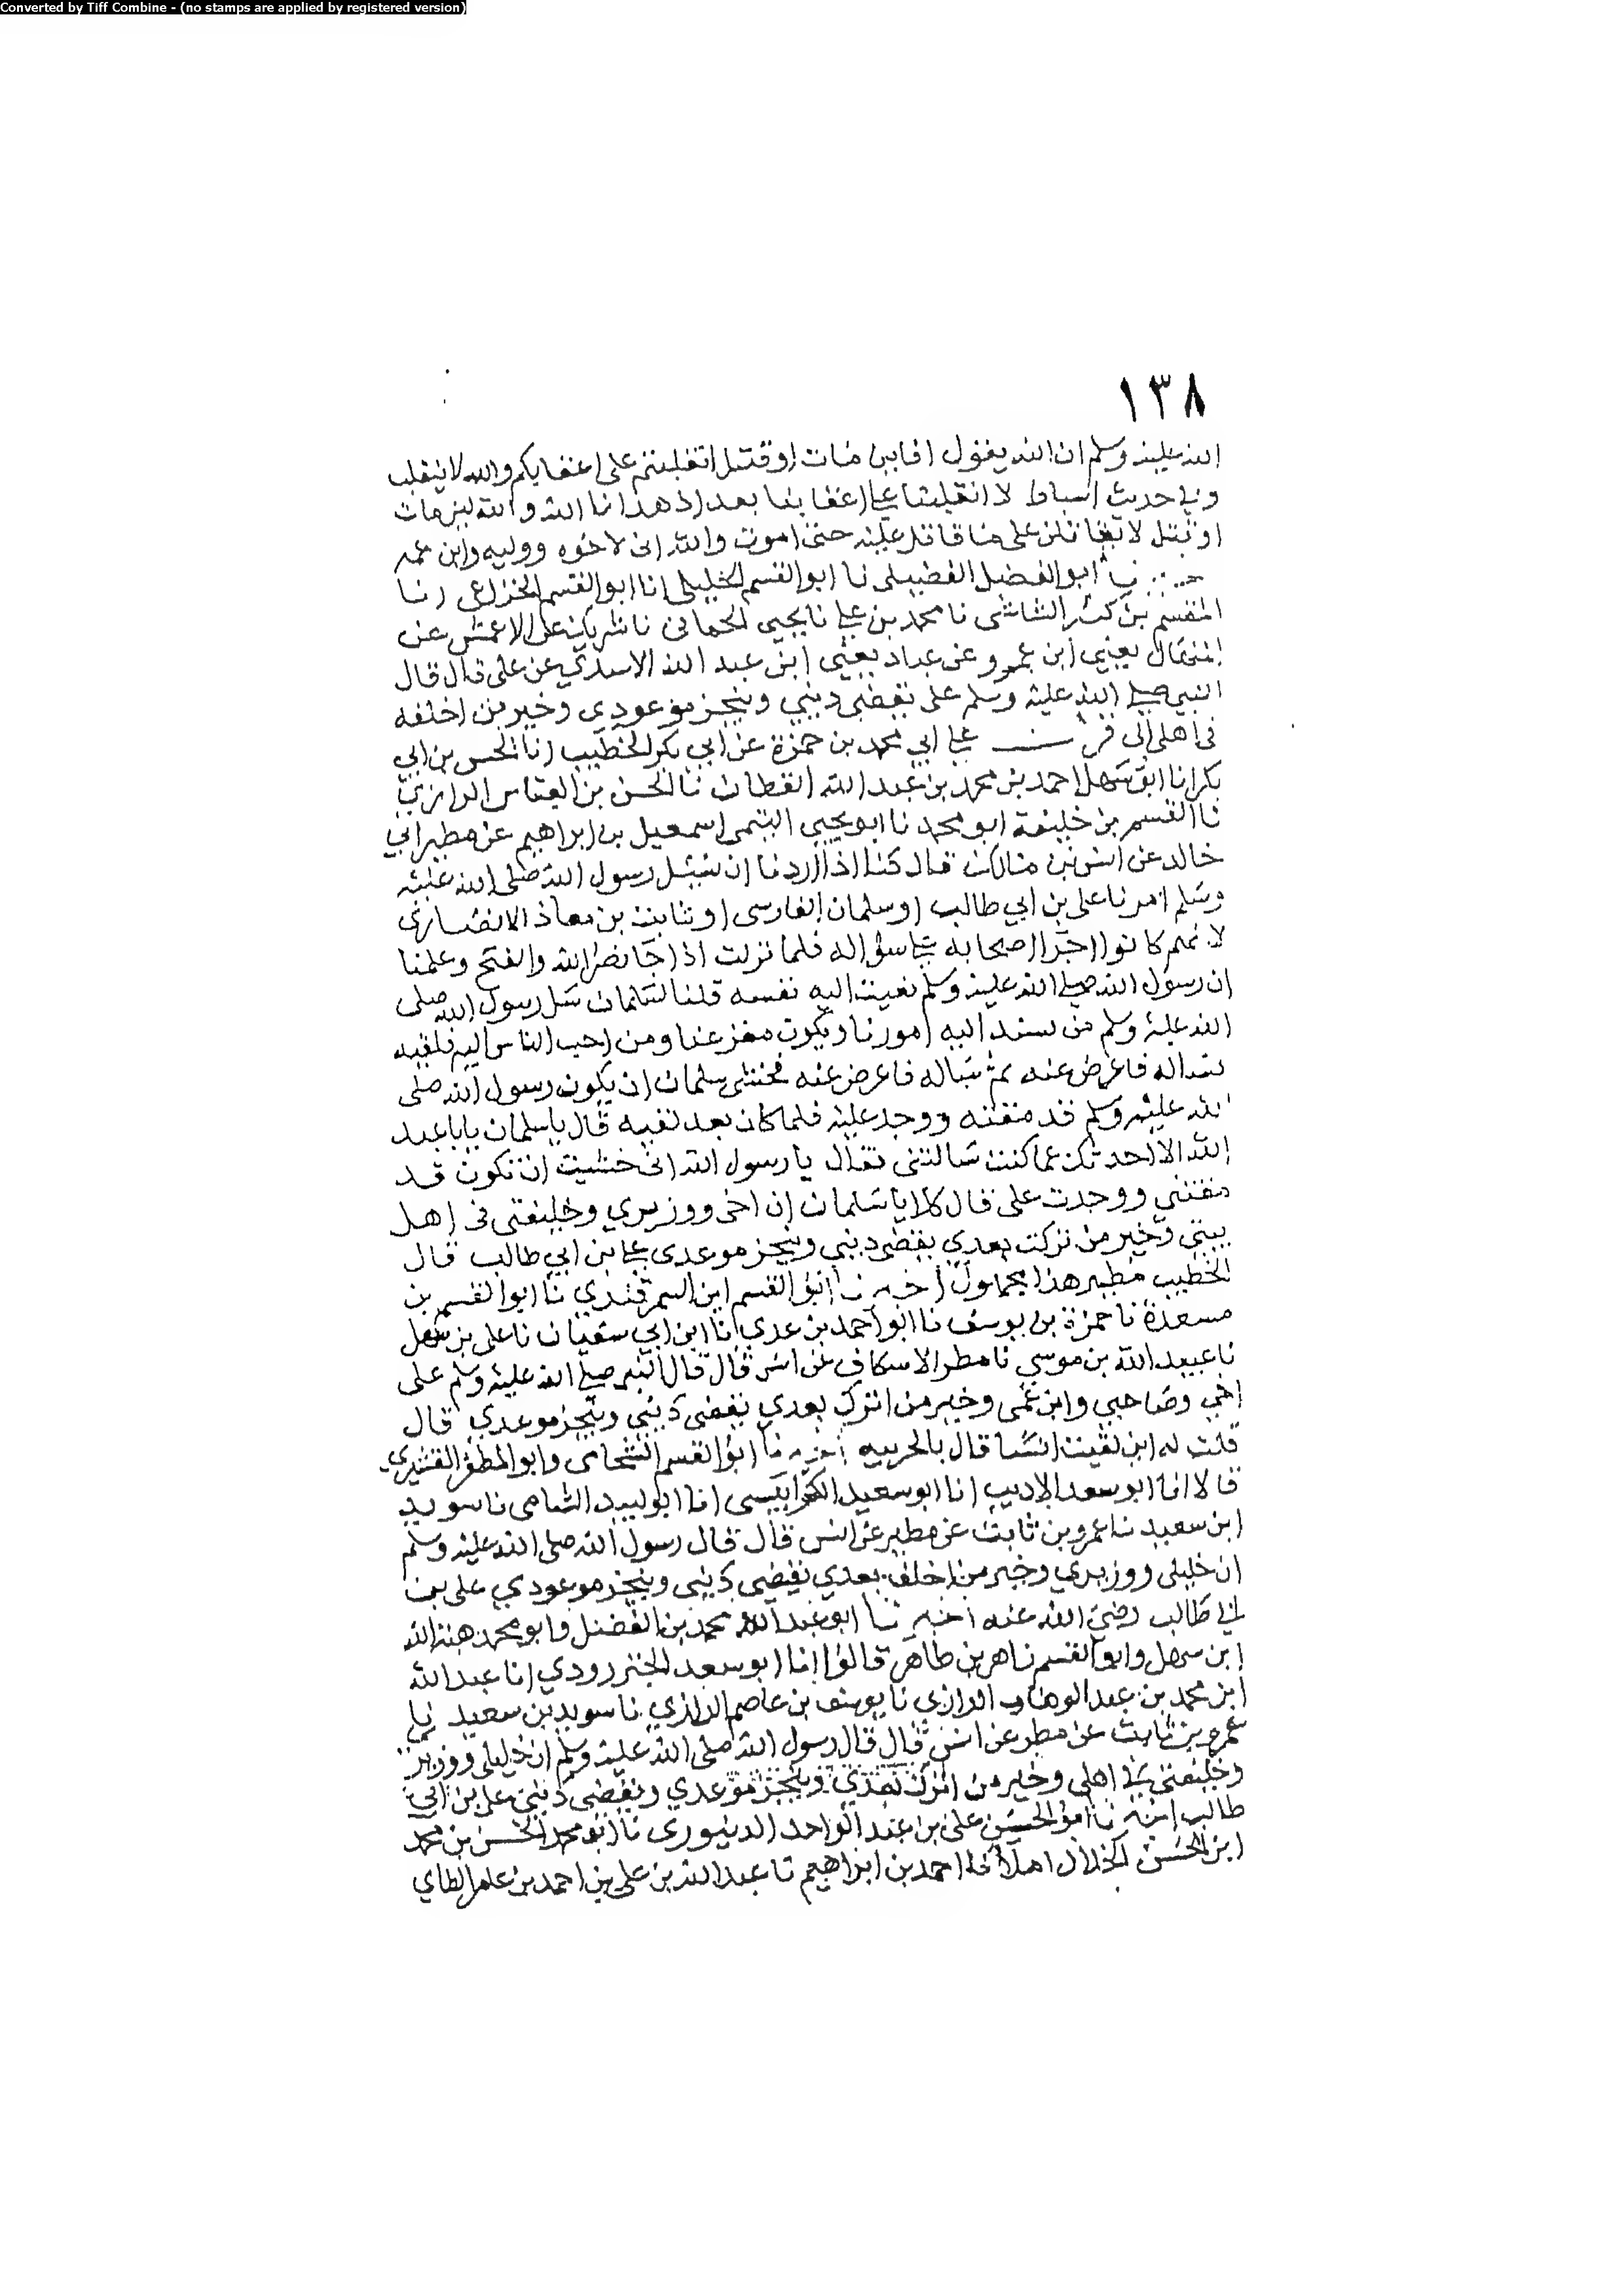 Converted by Tiff Combine - (no stamps are applied by registered version)
١٣٨
الله عليه وسلم ان الله يقول افاين مات او قتل انقلبتم على اعقابكم والله لا ينقلب
وفي حديث اسباط لا انقلبنا على اعقابنا بعد اذ هدانا الله والله لين مات
او قتل لاقاتلن على ما قاتل عليه حتى اموت والله اني لاخوه ووليه وابن عمه
نا ابو الفضل الفضيلي نا ابو القسم الخليلي انا ابو القسم الخزاعي انا
الهيثم بن كليب الشاشي نا محمد بن علي نا يحيى الحماني نا شريك عن الاعمش عن
المنهال يعني ابن عمرو عن عباد يعني ابن عبد الله الاسدي عن علي قال قال
النبي صلى الله عليه وسلم علي يقضي ديني وينجز موعودي وخير من اخلفه
في اهلي على ابي محمد بن حمزة عن ابي بكر الخطيب انا الحسن بن ابي
بكر انا ابو سهل احمد بن محمد بن عبد الله القطان نا الحسن بن العباس الرازي
نا القسم بن خليفة ابو محمد نا ابو يحيى التيمي اسمعيل بن ابراهيم عن مطير ابي
خالد عن انس بن مالك قال كنا اذا اردنا ان نسئل رسول الله صلى الله عليه
وسلم امرنا علي بن ابي طالب او سلمان الفارسي او ثابت بن معاذ الانصاري
لانهم كانوا اجرا اصحابه على سؤاله فلما نزلت اذا جا نصر الله والفتح وعلمنا
ان رسول الله صلى الله عليه وسلم نعيت اليه نفسه قلنا لسلمان سل رسول الله صلى
الله عليه وسلم من نسند اليه امورنا ويكون مفزعنا ومن احب الناس اليه فلقيه
فساله فاعرض عنه ثم ساله فاعرض عنه فخشي سلمان ان يكون رسول الله صلى
الله عليه وسلم قد مقته ووجد عليه فلما كان بعد لقيه قال يا سلمان يابا عبد
الله الا احدثك عما كنت سالتني فقال يا رسول الله اني خشيت ان تكون قد
مقتني ووجدت علي قال كلا يا سلمان ان اخي ووزيري وخليفتي في اهل
بيتي وخير من تركت بعدي يقضي ديني وينجز موعدي علي بن ابي طالب قال
الخطيب مطير هذا مجهول اخبرنا ابو القسم ابن السمرقندي نا ابو القسم بن
مسعدة نا حمزة بن يوسف نا ابو احمد بن عدي انا ابن ابي سفيان نا علي بن سهل
نا عبيد الله بن موسى نا مطر الاسكاف عن انس قال قال النبي صلى الله عليه وسلم علي
اخي وصاحبي وابن عمي وخير من اترك بعدي يقضي ديني وينجز موعدي قال
قلت له اين لقيت انسا قال بالخريبه اخبرنا ابو القسم الشحامي وابو المظفر القشيري
قالا انا ابو سعد الاديب انا ابو سعيد الكرابيسي انا ابو لبيد الشامي نا سويد
ابن سعيد نا عمرو بن ثابت عن مطير عن انس قال قال رسول الله صلى الله عليه وسلم
ان خليلي ووزيري وخير من اخلف بعدي يقضي ديني وينجز موعودي علي بن
ابي طالب رضي الله عنه اخبرنا ابو عبد الله محمد بن الفضل وابو محمد هبة الله
ابن سهل وابو القسم زاهر بن طاهر قالوا انا ابو سعد الجنزرودي انا عبد الله
ابن محمد بن عبد الوهاب الرازي نا يوسف بن عاصم الرازي نا سويد بن سعيد نا
عمرو بن ثابت عن مطر عن انس قال قال رسول الله صلى الله عليه وسلم ان خليلي ووزير
وخليفتي في اهلي وخير من اترك بعدي وينجز موعدي ويقضي ديني علي بن ابي
طالب نا ابو الحسن علي بن عبد الواحد الدينوري نا ابو محمد الحسن بن محمد
ابن الحسن الخلال املا نا احمد بن ابراهيم نا عبد الله بن علي بن احمد بن عامر الطاي